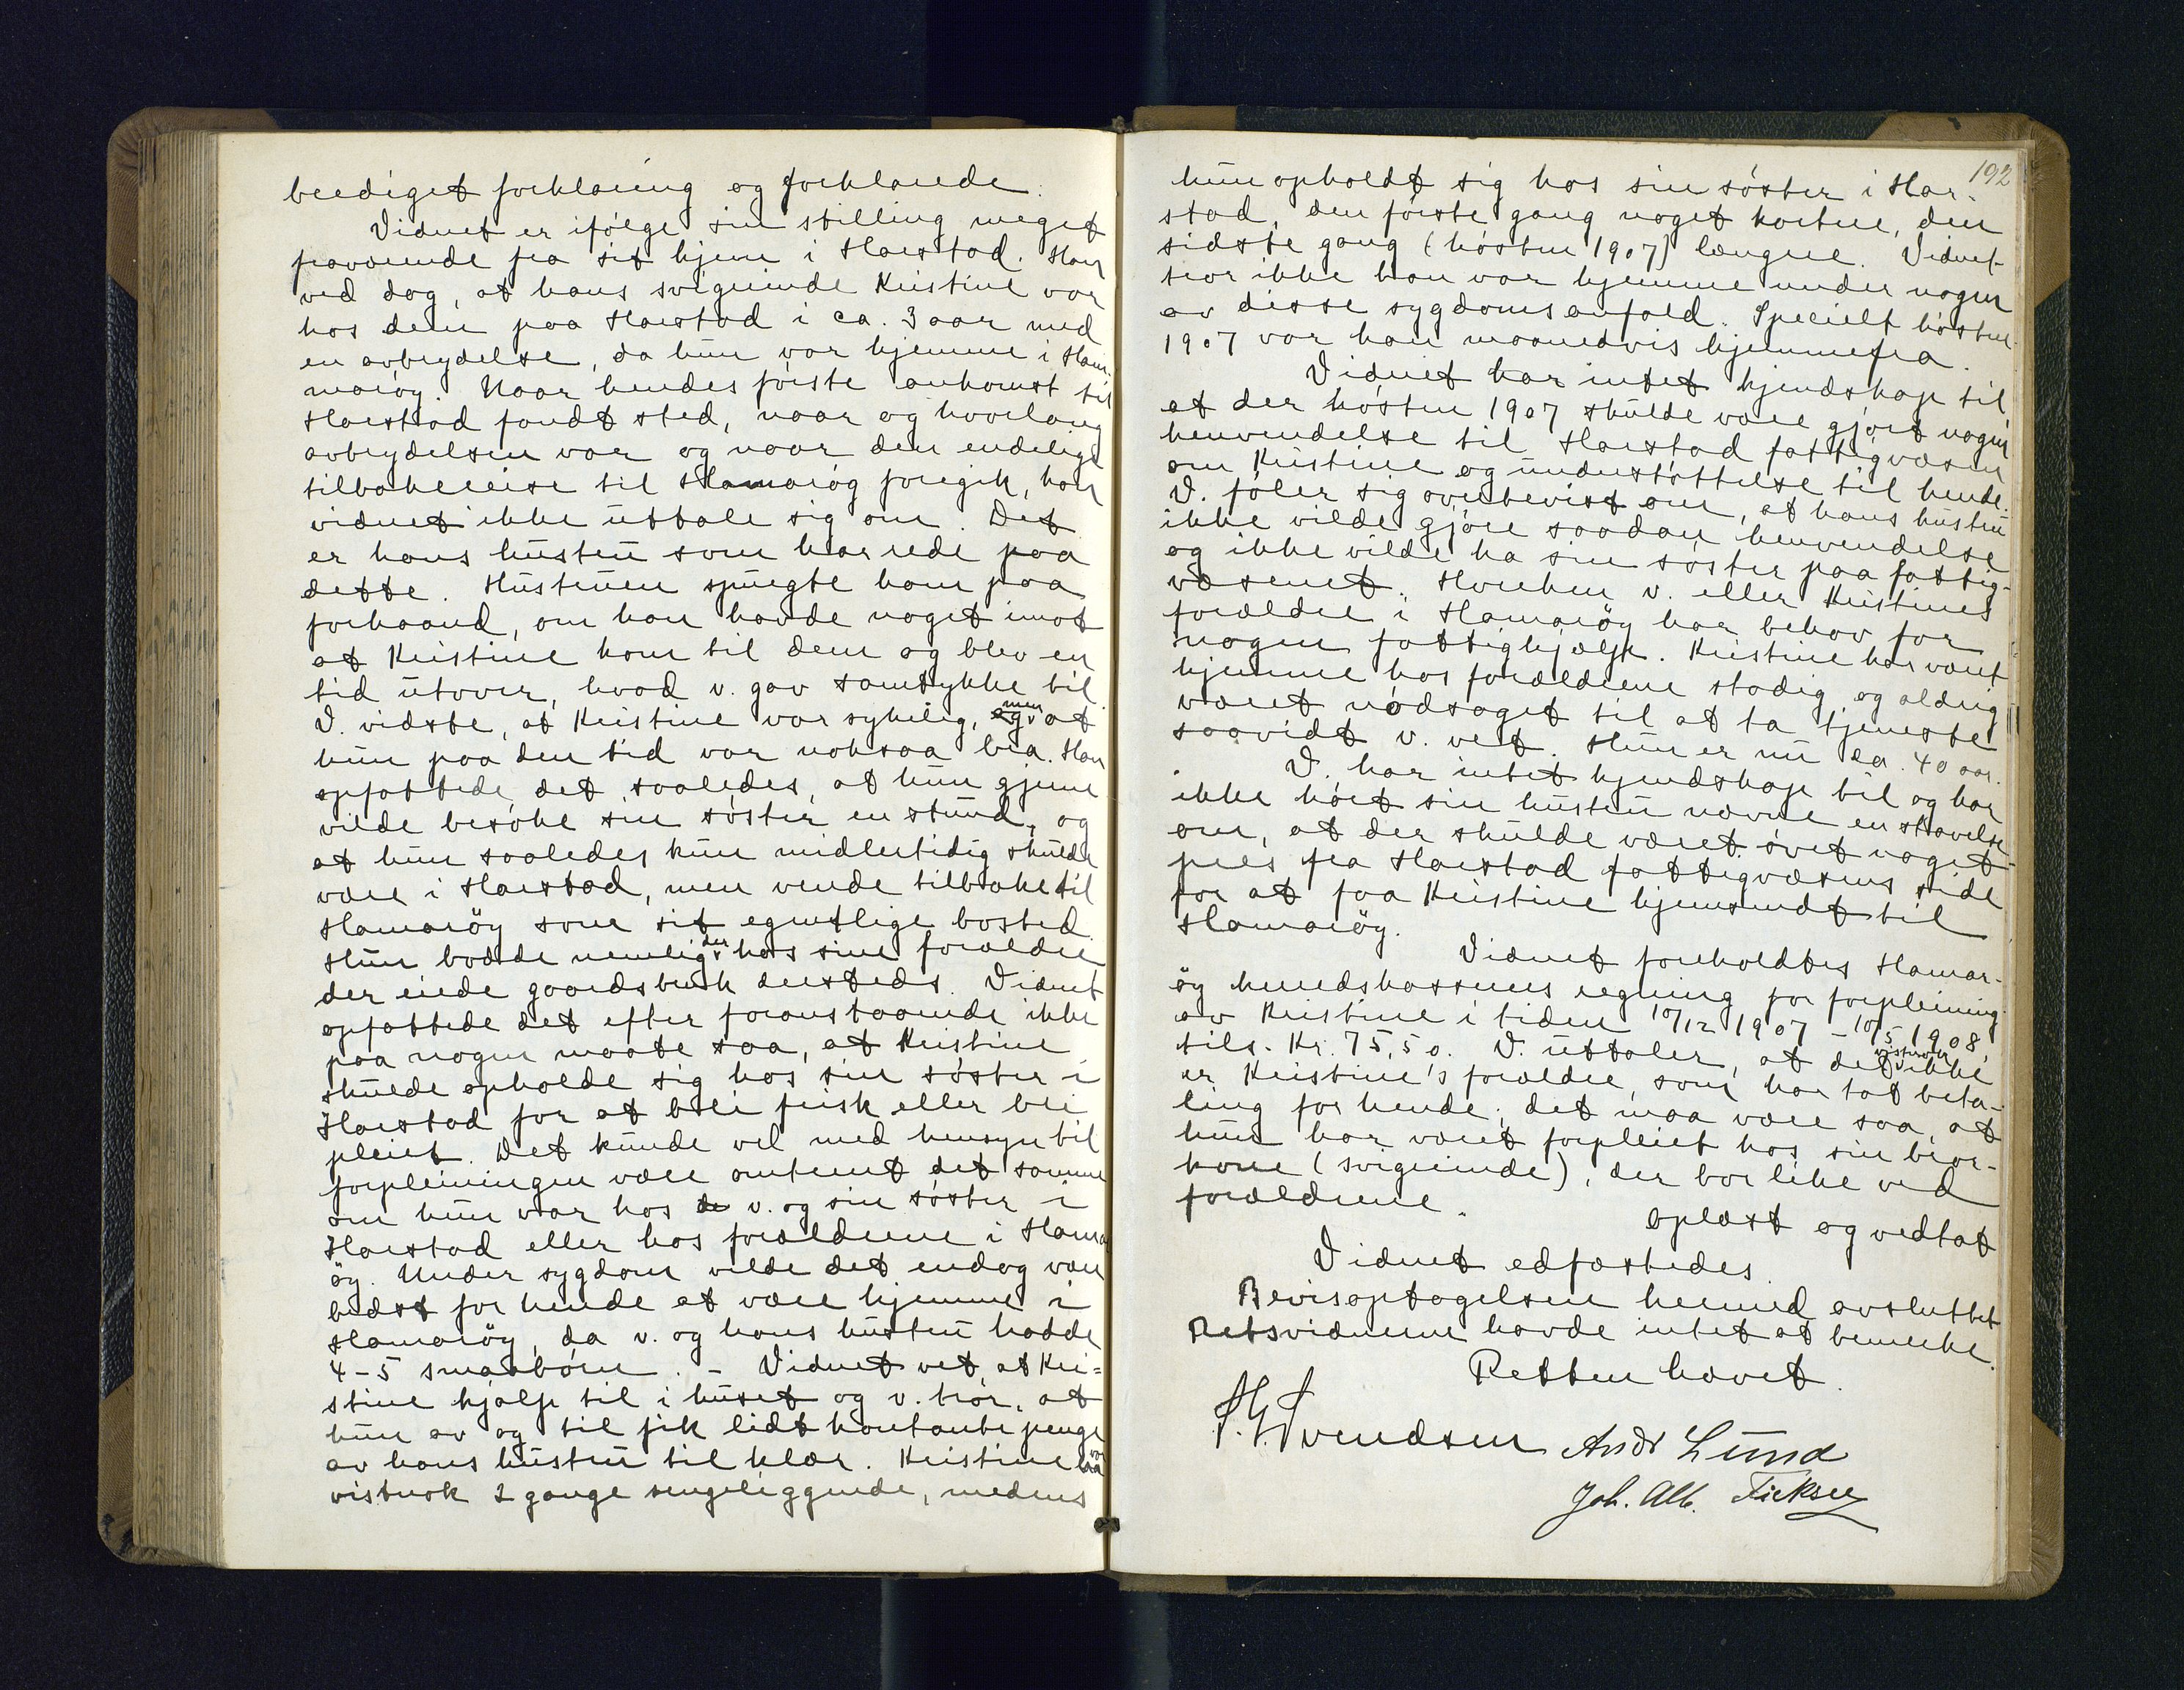 beediget forklaring og forklarede:
Vidnet er ifølge sin stilling meget
fraværende fra sit hjem i Harstad. Han
ved dog, at hans svigerinde Kristine var
hos dem paa Harstad i ca. 3 aar med
en avbrydelse, da hun var hjemme i Ham-
marøy. Naar hendes første ankomst til
Harstad fandt sted, naar og hvorlang
avbrydelsen var og naar den endelige
tilbakereise til Hamarøy foregik, kan
vidnet ikke uttale sig om. Det
er hans hustru som har rede paa
dette. Hustruen spurgte ham paa
forhaand, om han havde noget imot
at Kristine kom til dem og blev en
tid utover, hvad v. gav samtykke til.
V. vidste, at Kristine var sykelig, og men at
hun paa den tid var noksaa bra. Han
opfattede det saaledes, at hun gjerne
vilde besøke sin søster en stund, og
at hun saaledes kun midlertidig skulde
være i Harstad, men vende tilbake til
Hamarøy som sit egentlige bosted.
Hun bodde nemlig der hos sine forældre
der eiede gaardsbruk dersteds. Vidnet
opfattede det efter foranstaaende ikke
paa nogen maate saa, at Kristine
skulde opholde sig hos sin søster i
Harstad for at bli frisk eller bli
pleiet. Det kunde vel med hensyn til
forpleiningen være omtrent det samme
om hun var hos de v. og sin søster i
Harstad eller hos forældrene i Hamar
øy. Under sygdom vilde det endog være
bedst for hende at være hjemme i
Hamarøy, da v. og hans hustru hadde
4-5 smaabørn. - Vidnet vet, at Kri=
stine hjalp til i huset og v. tror, at
hun av og til fik lidt kontante penge
av hans hustru til klær. Kristine var
vistnok 2 gange sengeliggende, medens
192
hun opholdt sig hos sin søster i Har-
stad, den første gang noget kortere, den
sidste gang (høsten 1907) længere. Vidnet
tror ikke han var hjemme under nogen
av disse sygdomsanfald. Specielt høsten
1907 var han maanedvis hjemmefra.
Vidnet har intet kjendskap til
at der høsten 1907 skulde være gjort nogen
henvendelse til Harstad fattigvæsen
om Kristine og understøttelse til hende.
V. føler sig overbevist om, at hans hustru
ikke vilde gjøre saadan henvendelse
og ikke vilde ha sin søster paa fattig-
væsenet. Hverken v. eller Kristines
forældre i Hamarøy har behov for
nogen fattighjælp. Kristine har været
hjemme hos forældrene stadig og aldrig
været nødsaget til at ta tjeneste
saavidt v. vet. Hun er nu ca. 40 aar.
V. har intet kjendskap til og har
ikke hørt sin hustru nævne en stavelse
om, at der skulde været øvet noget
pres fra Harstad fattigvæsens side
for at faa Kristine hjemsendt til
Hamarøy.
Vidnet foreholdtes Hamar-
øy herredskasserers regning for forpleining
av Kristine i tiden 10/12 1907 - 10/5 1908,
tils. Kr. 75,50. V. uttaler, at det vistnok ikke
er Kristine's forældre, som har tat beta-
ling for hende; det maa være saa, at
hun har været forpleiet hos sin bror-
kone (svigerinde), der bor like ved
forældrene.
Oplæst og vedtat
Vidnet edfæstedes.
Bevisoptagelsen hermed avsluttet
Retsvidnerne havde intet at bemerke.
Retten hævet.
Svendsen Andr Lund
Joh. Alb.